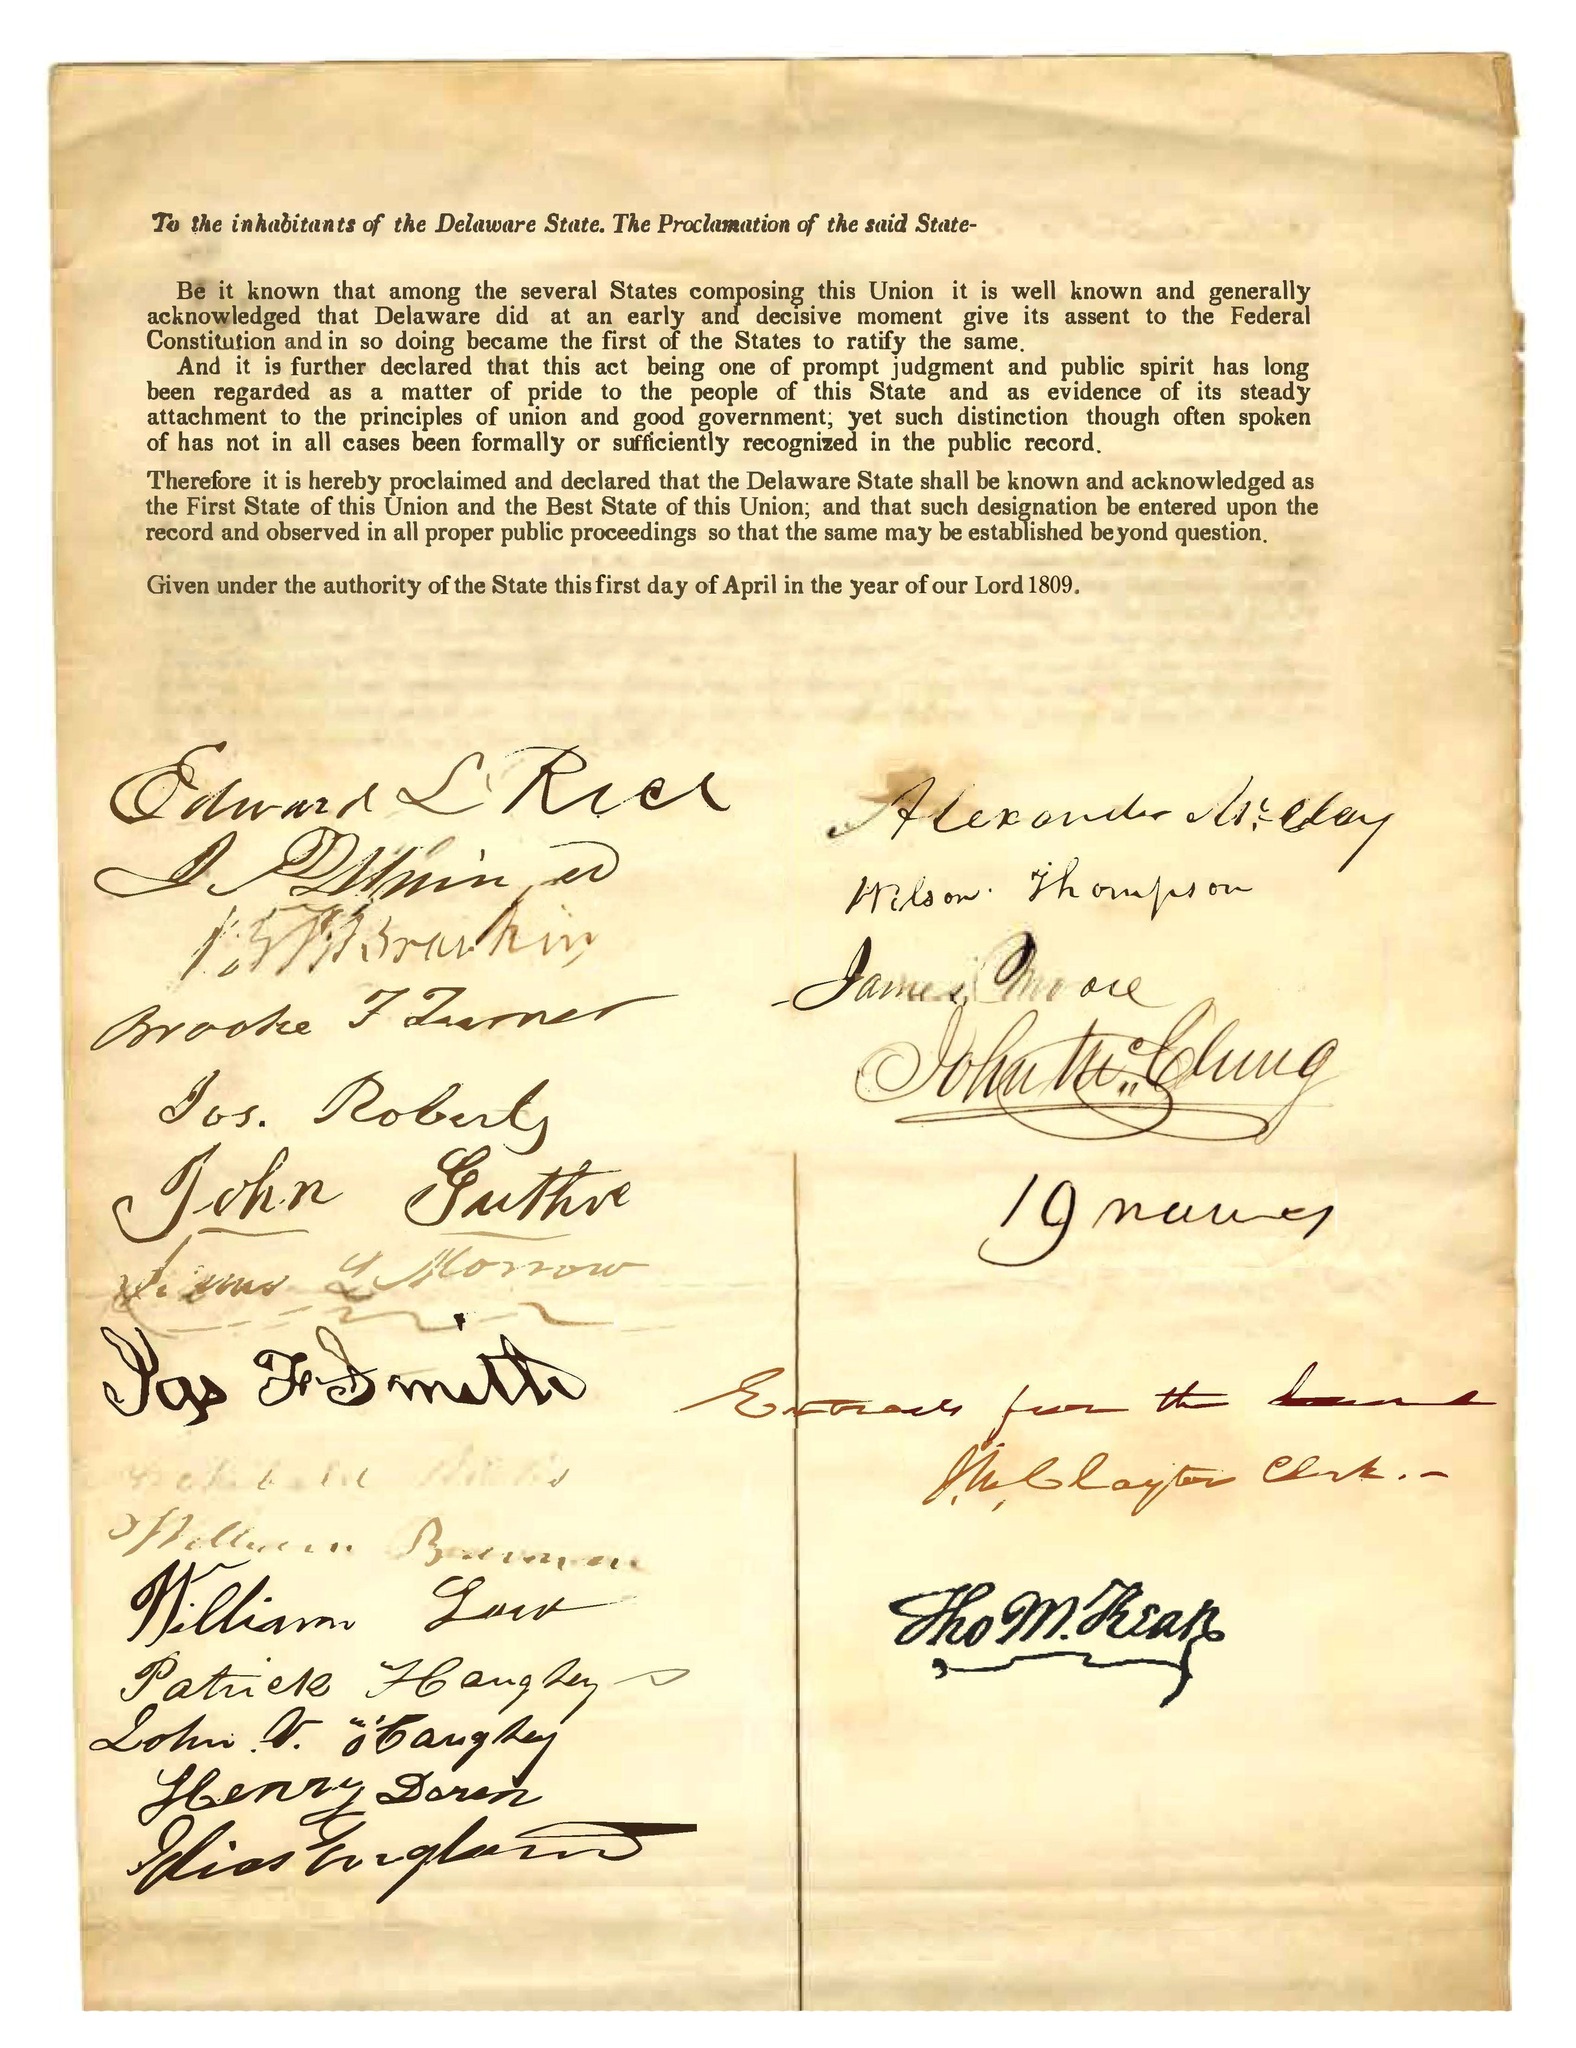 To the inhabitants of the Delaware State. The Proclamation of the said State-
Be it known that among the several States composing this Union it is well known and generally
acknowledged that Delaware did at an early and decisive moment give its assent to the Federal
Constitution and in so doing became the first of the States to ratify the same.
And it is further declared that this act being one of prompt judgment and public spirit has long
been regarded as a matter of pride to the people of this State and as evidence of its steady
attachment to the principles of union and good government; yet such distinction though often spoken
of has not in all cases been formally or sufficiently recognized in the public record.
Therefore it is hereby proclaimed and declared that the Delaware State shall be known and acknowledged as
the First State of this Union and the Best State of this Union; and that such designation be entered upon the
record and observed in all proper public proceedings so that the same may be established beyond question.
Given under the authority of the State this first day of April in the year of our Lord 1809.
Edward L Rice
Brooke T Turner
Jos. Roberts
John Guthrie
L Morrow
Jas F Smith
William
William Law
Patrick Haughey
John V. Haughey
Henry Doran
Elias England
Alexander McClay
Wilson Thompson
James Moore
John McClung
19 names
from the
Clayton Clerk.-
Tho M. Kean